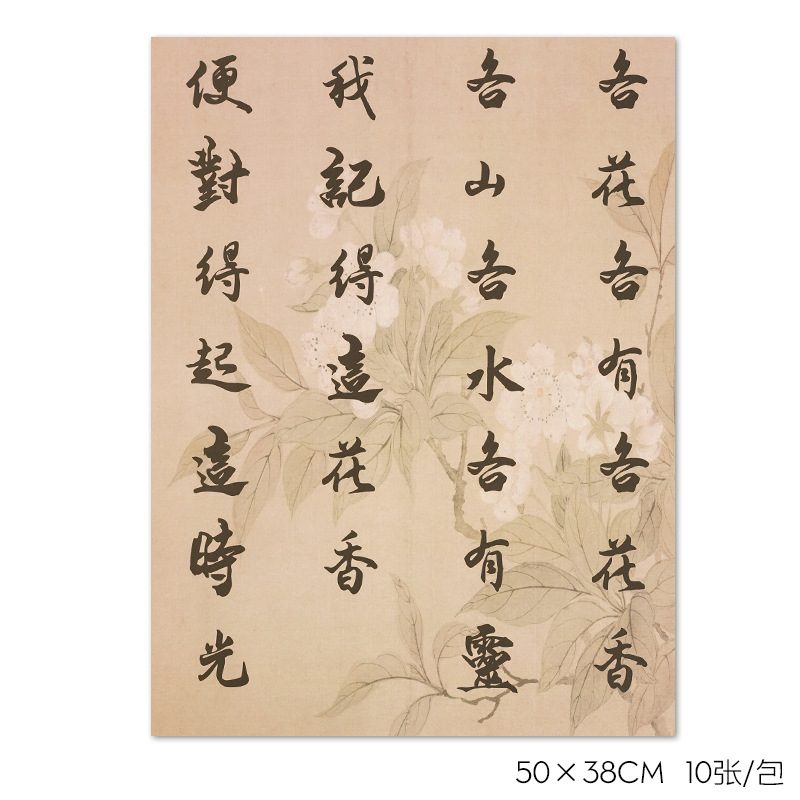 各花各有各花香
各山各水各有靈
我記得這花香
便對得起這時光
50×38CM 10张/包